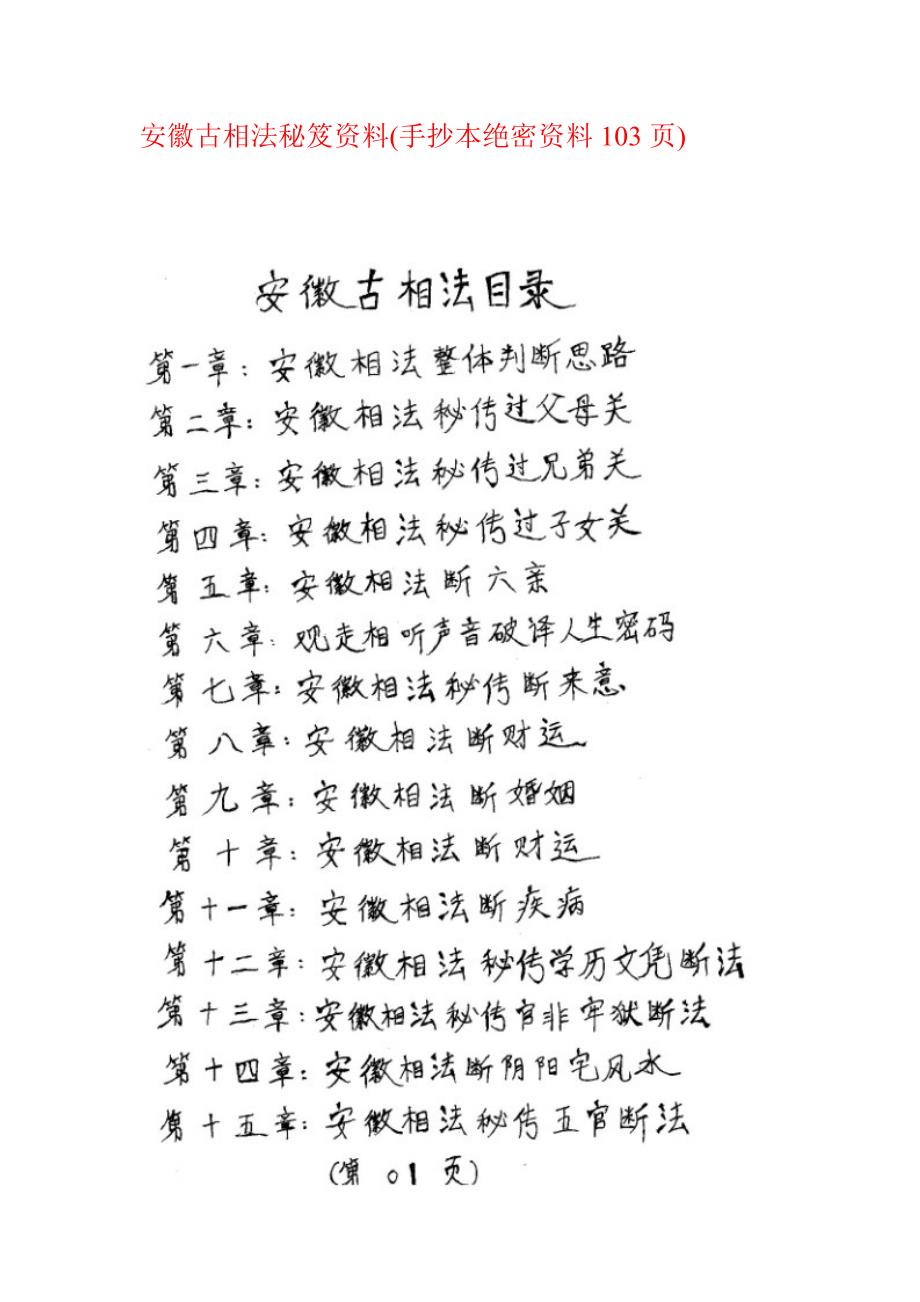 安徽古相法秘笈资料(手抄本绝密资料 103 页)
安徽古相法目录
第一章：安徽相法整体判断思路
第二章：安徽相法秘传过父母关
第三章：安徽相法秘传过兄弟关
第四章：安徽相法秘传过子女关
第五章：安徽相法断六亲
第六章：观走相听声音破译人生密码
第七章：安徽相法秘传断来意
第八章：安徽相法断财运
第九章：安徽相法断婚姻
第十章：安徽相法断财运
第十一章：安徽相法断疾病
第十二章：安徽相法秘传学历文凭断法
第十三章：安徽相法秘传官非牢狱断法
第十四章：安徽相法断阴阳宅风水
第十五章：安徽相法秘传五官断法
(第 01 页)